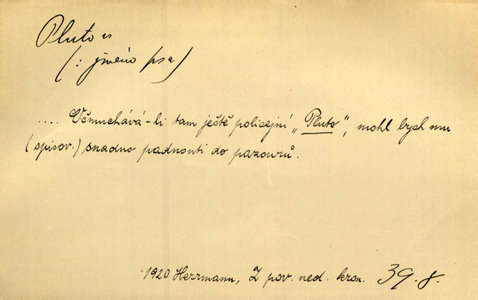 Pluto m
(: jméno psa)
.... Včmuchává-li tam ještě policejní „Pluto", mohl bych mu
(spisov.) snadno padnouti do pazourů.
1920 Herrmann, Z pov. ned. kron. 39. 8.